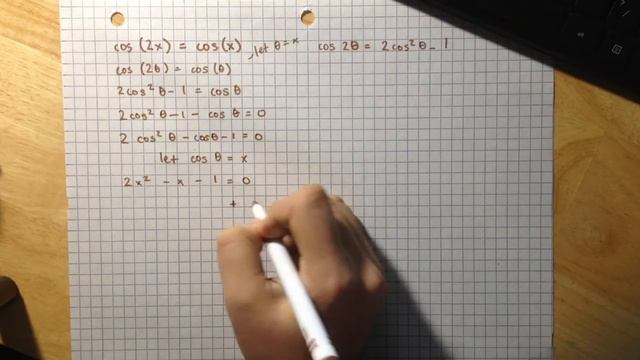 cos (2x) = cos(x) , let θ = x cos 2θ = 2cos² θ - 1
cos (2θ) = cos (θ)
2cos² θ - 1 = cos θ
2cos² θ - 1 - cos θ = 0
2 cos² θ - cosθ - 1 = 0
let cos θ = x
2x² - x - 1 = 0
+